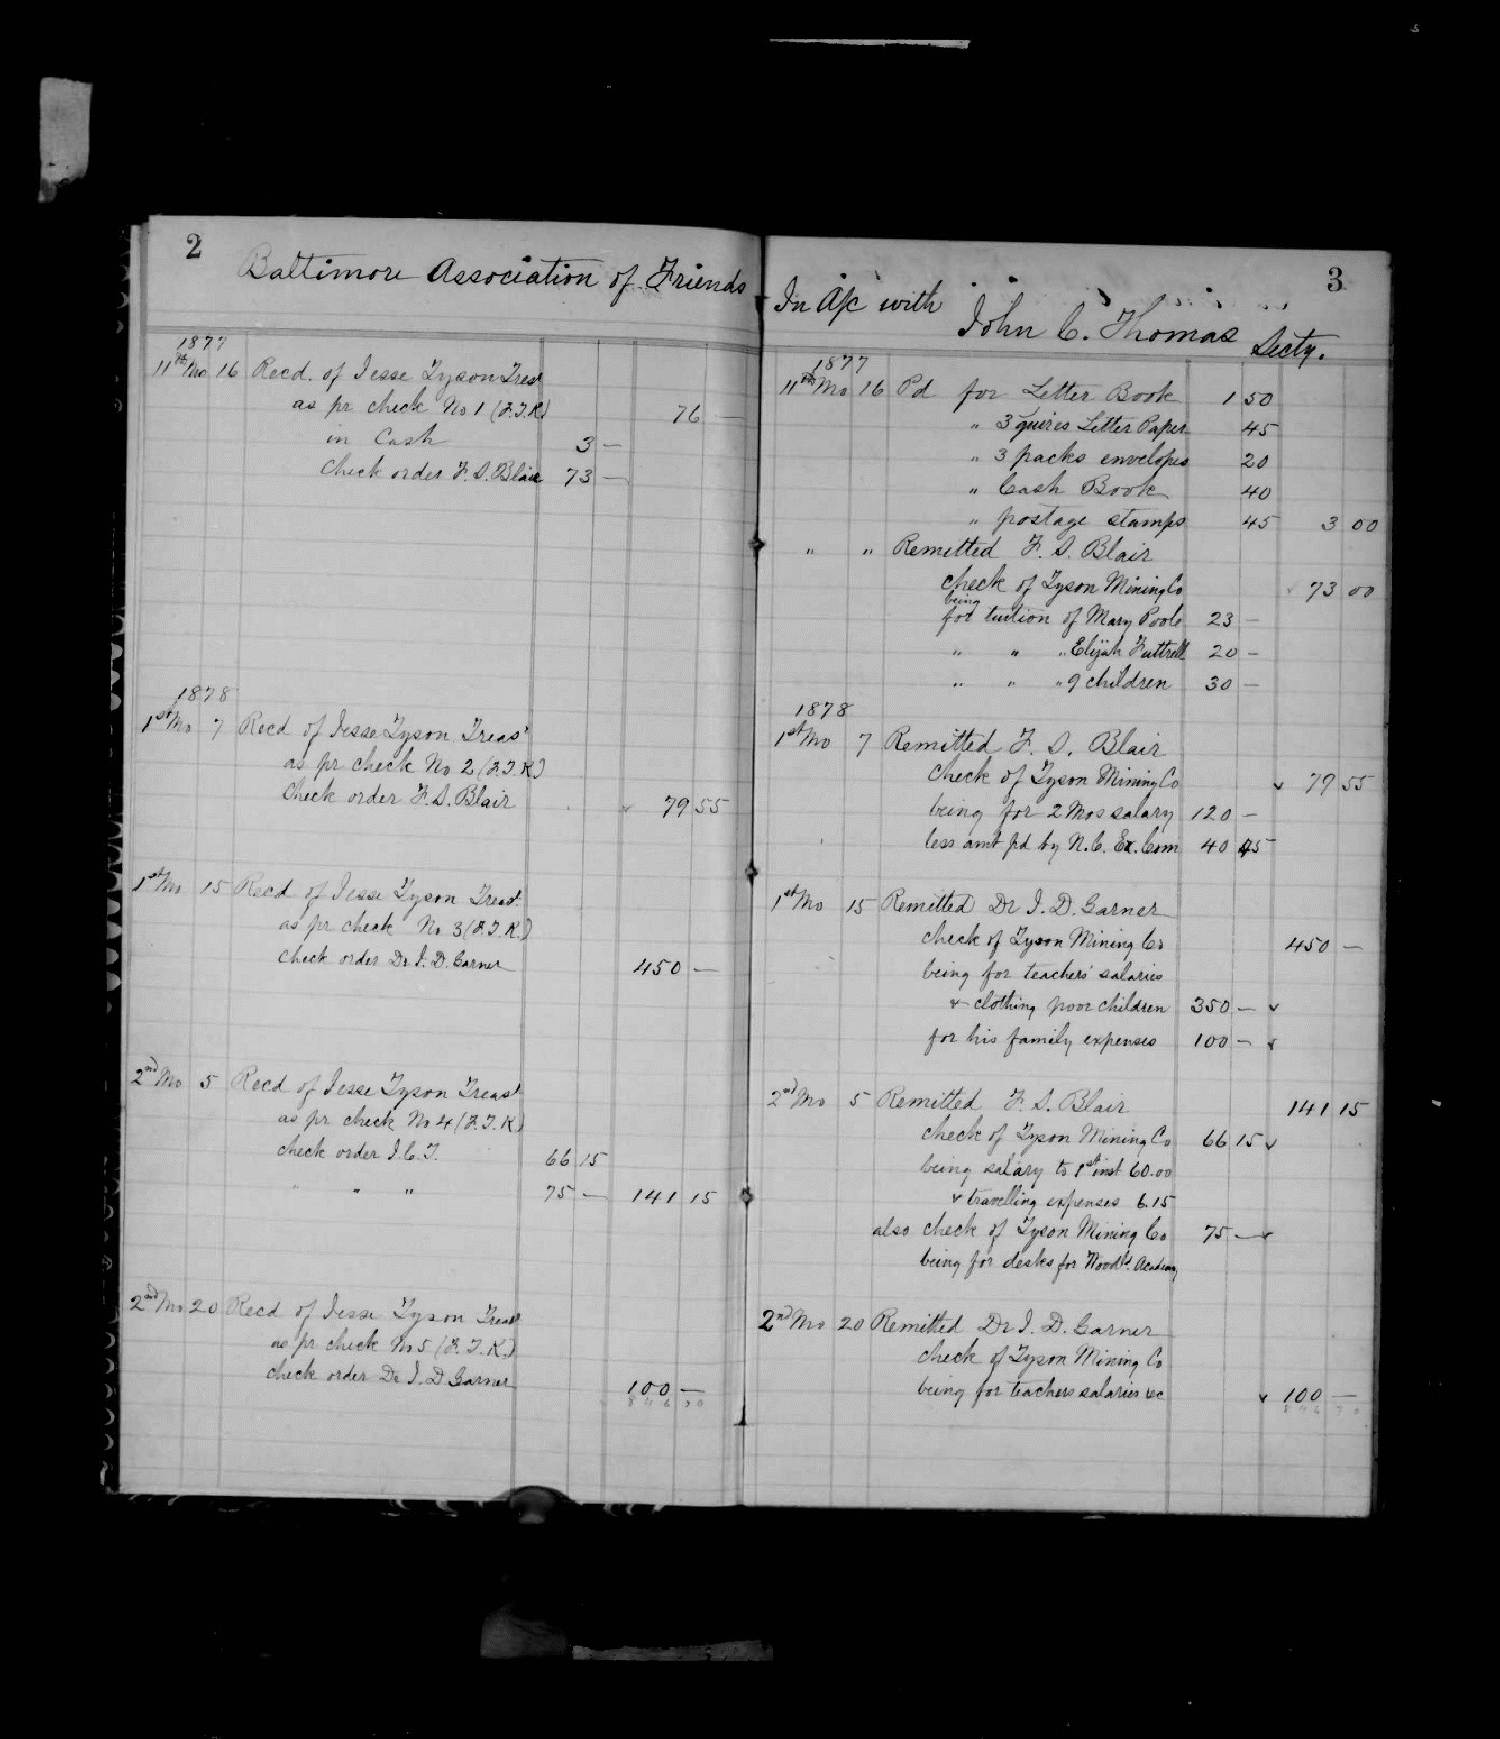 2
Baltimore Association of Friends
1877
11th Mo 16 Recd. of Jesse Tyson Treast
as pr check No 1 (F.T.K) 76 —
in Cash 3 —
Check order F. S. Blair 73 —
1878
1st Mo 7 Recd of Jesse Tyson Treast
as pr check No 2 (F.T.K)
Check order F. S. Blair 79 55
1st Mo 15 Recd of Jesse Tyson Treast
as pr check No 3 (F.T.K.)
Check order Dr I. D. Garner 450 —
2nd Mo 5 Recd of Jesse Tyson Treast
as pr check No 4 (F.T.K)
check order J. C. T. 66 15
" " " 75 — 141 15
2nd Mo 20 Recd of Jesse Tyson Treast
as pr check No 5 (F.T.K.)
check order Dr I. D. Garner 100 —
846 70
3
In A/c with John C. Thomas Secty.
1877
11th Mo 16 Pd for Letter Book 1 50
" 3 quires Letter Paper 45
" 3 packs envelopes 20
" Cash Book 40
" postage stamps 45 3 00
" " Remitted F. S. Blair
check of Tyson Mining Co 73 00
being
for tuition of Mary Poole 23 —
" " " Elijah Futtrell 20 —
" " " 9 children 30 —
1878
1st Mo 7 Remitted F. S. Blair
Check of Tyson Mining Co 79 55
being for 2 Mos salary 120 —
less amt pd by N. C. Ex. Com 40 45
1st Mo 15 Remitted Dr I. D. Garner
check of Tyson Mining Co 450 —
being for teachers' salaries
& clothing poor children 350 —
for his family expenses 100 —
2nd Mo 5 Remitted F. S. Blair 141 15
check of Tyson Mining Co 66 15
being salary to 1st inst 60.00
& travelling expenses 6.15
also check of Tyson Mining Co 75 —
being for desks for Woodld. Academy
2nd Mo 20 Remitted Dr I. D. Garner
check of Tyson Mining Co
being for teachers salaries &c 100 —
846 70